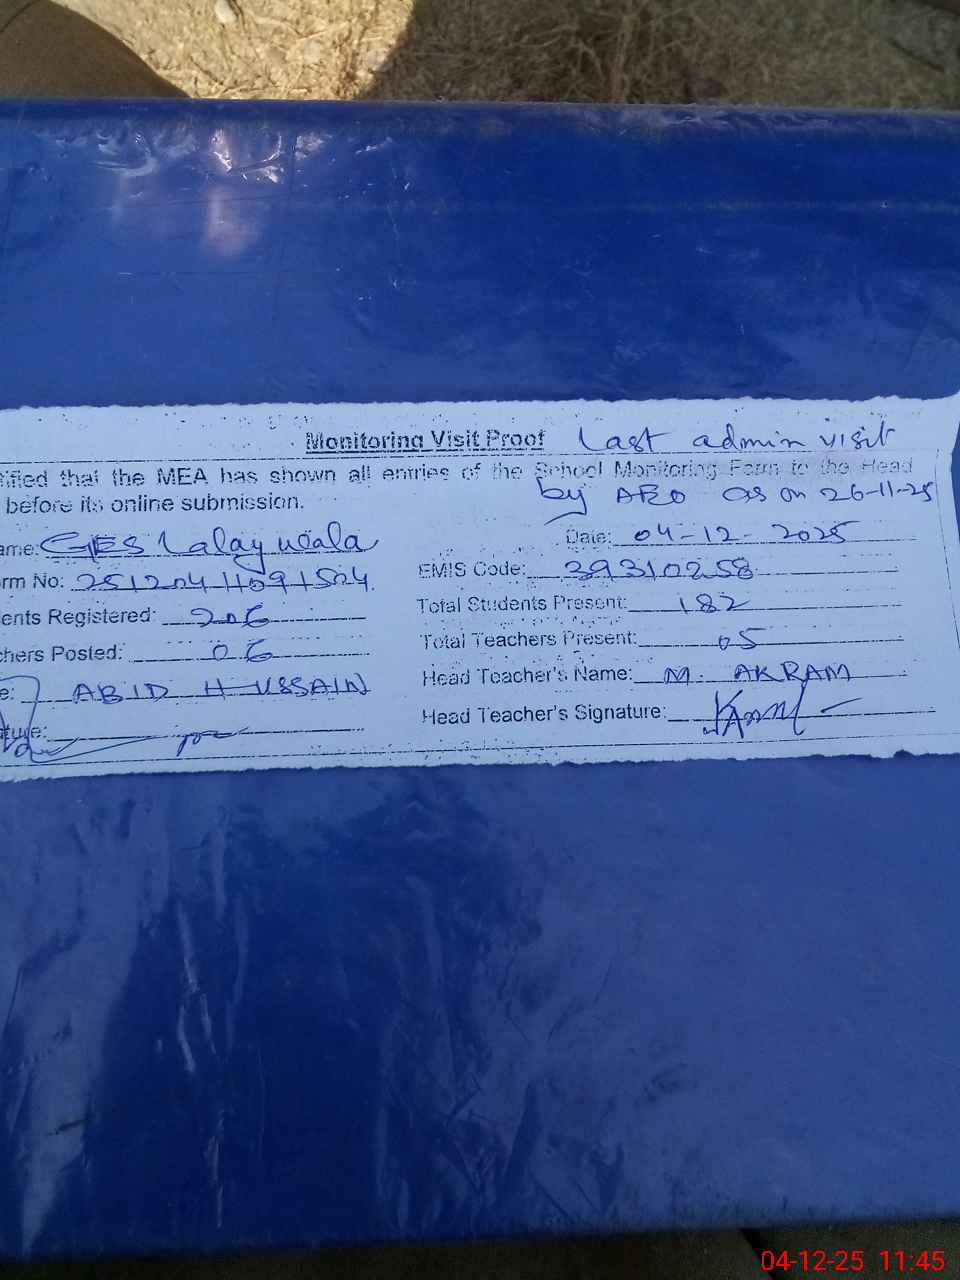 Monitoring Visit Proof Last admin visit
ified that the MEA has shown all entries of the School Monitoring Form to the Head
before its online submission. by AEO as on 26-11-25
ame: GES Lalay wala Date: 04-12-2025
rm No: EMIS Code: 39310258
ents Registered: 206 Total Students Present: 182
chers Posted: 06 Total Teachers Present: 05
e: ABID HUSSAIN Head Teacher's Name: M. AKRAM
ture: Head Teacher's Signature:
04-12-25 11:45